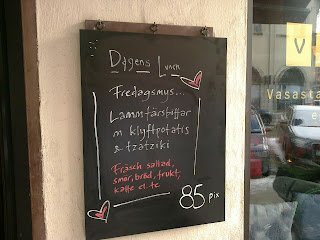 Dagens Lunch
Fredagsmys...
Lammfärsbiffar
m klyftpotatis
& tzatziki
Fräsch sallad,
smör, bröd, frukt,
kaffe el. te
85 pix
V
Vasasta